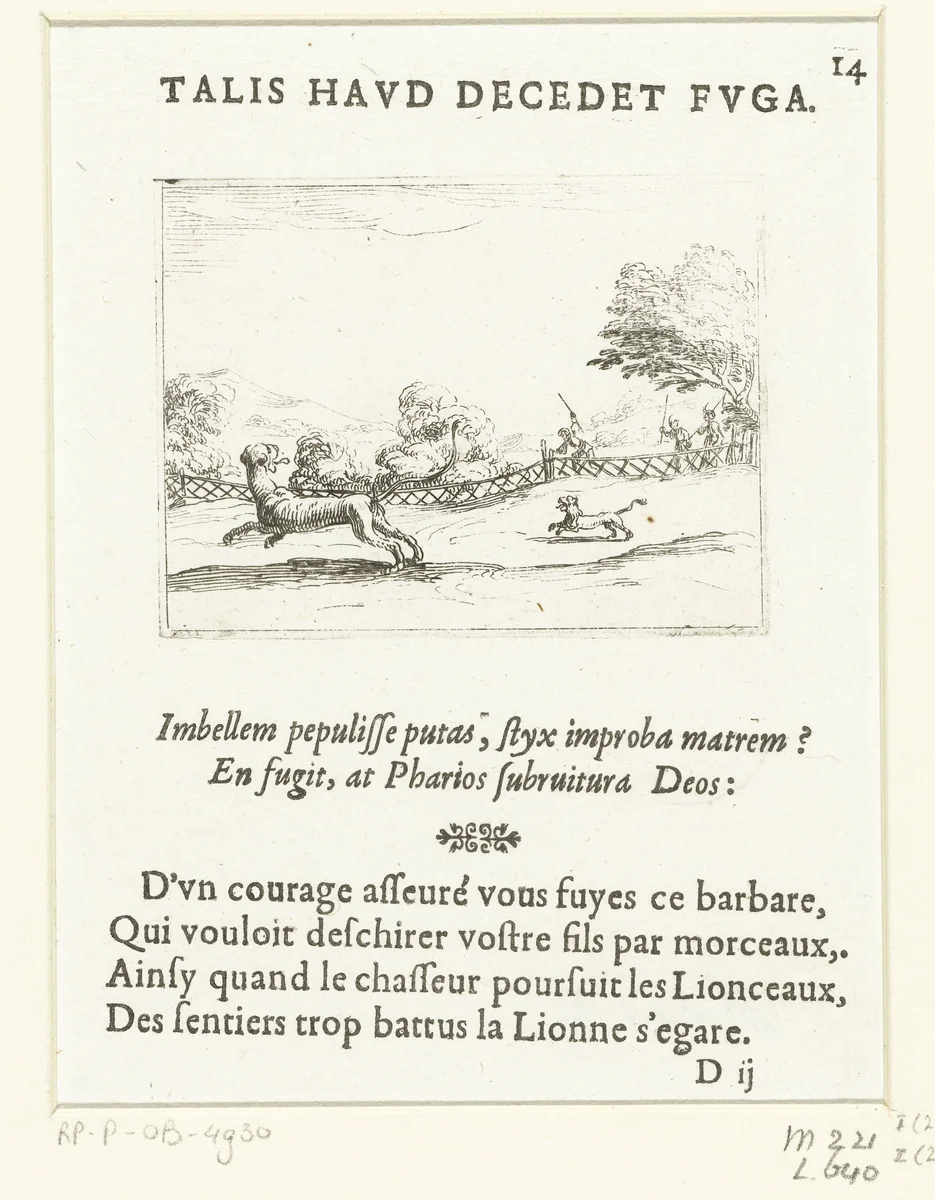 14
TALIS HAVD DECEDET FVGA.
Imbellem pepuliſſe putas, ſtyx improba matrem ?
En fugit, at Pharios ſubruitura Deos :
D'vn courage aſſeuré vous fuyes ce barbare,
Qui vouloit deſchirer voſtre fils par morceaux,.
Ainſy quand le chaſſeur pourſuit les Lionceaux,
Des ſentiers trop battus la Lionne s'egare.
D ij
RP-P-OB-4930
M 221
L. 640